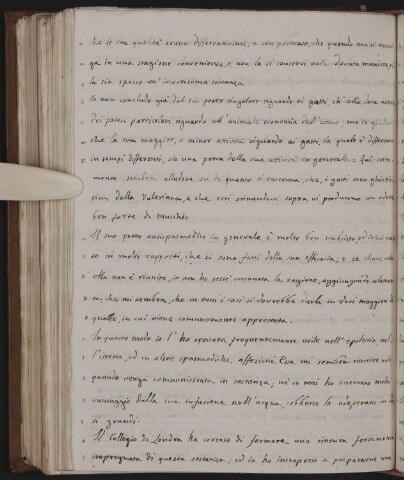 che le sue qualità erano differentissime, e son persuaso, che quando non si racco-
ga in una stagione conveniente, e non la si conservi nella dovuta maniera, el-
la sia spesso un' inertissima sostanza.
Io non concludo già dal suo poter singolare riguardo ai gatti, ch' ella deva avere
dei poteri particolari riguardo all' animale economia dell' uomo, ma io
che la sua maggior, o minor attività riguardo ai gatti, la quale è differente
in tempi differenti, sia una prova della sua attività in generale. Qui
mente sembra alludere su di quanto si racconta, che i gatti sono ghiottis-
simi della Valeriana, e che essi orinandovi sopra vi producono un odore
ben forte di muschio.
Il suo poter antispasmodico in generale è molto ben stabilito, ed io
to ai molti rapporti, che si sono fatti della sua efficacia, e se alcune volte
ella non è riuscita, io non ho testè accennata la ragione, aggiungerò solamen-
te, che mi sembra, che in tutti i casi si dovrebbe darla in dosi maggiori di
quelle, in cui viene comunemente apprestata.
In questo modo io l' ho trovata frequentemente utile nell' epilessia, nel-
l' isteria, ed in altre spasmodiche affezioni. Essa mi sembra riuscire utile
quando venga somministrata in sostanza, nè io mai ho osservato molto
vantaggio dalla sua infusione nell' acqua, sebbene la adoperassi in do-
si grandi.
Il Collegio di Londra ha cercato di formare una tintura fortemente
impregnata di questa sostanza, ed io ho intrapreso a prepararne una